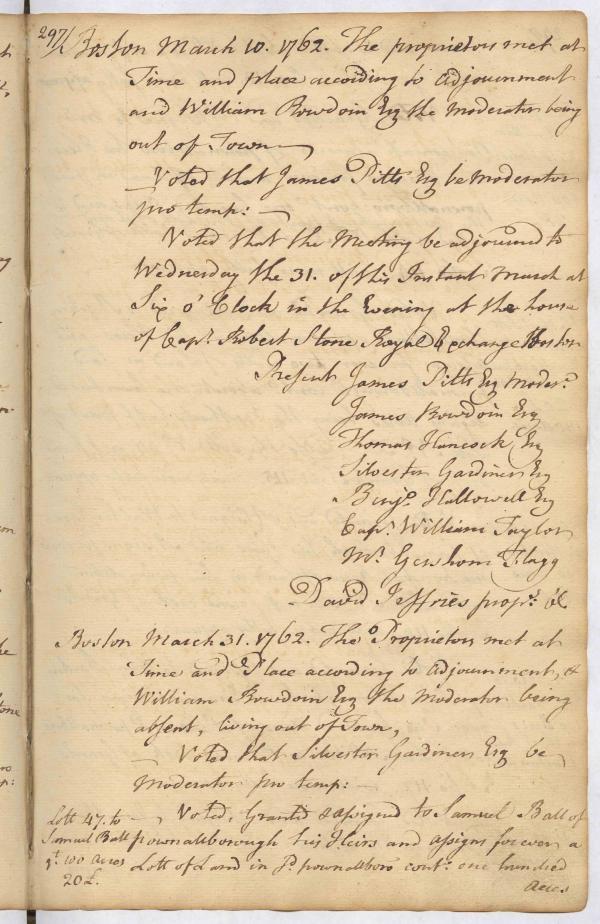 297/
Boston March 10. 1762. The proprietors met at
Time and place according to adjournment
and William Bowdoin Esq the moderator being
out of Town—
Voted that James Pitts Esq be moderator
pro temp: —
Voted that the Meeting be adjourned to
Wednesday the 31. of this Instant March at
Six o' Clock in the Evening at the house
of Capt. Robert Stone Royal Exchange Boston
Present James Pitts Esq Moder.r
James Bowdoin Esq
Thomas Hancock Esq
Silvester Gardiner Esq
Benj.a Hallowell Esq
Capt. William Taylor
Mr. Gershom Flagg
David Jeffries prop.rs Cle
Boston March 31. 1762. The Proprietors met at
Time and Place according to adjournment, &
William Bowdoin Esq the Moderator being
absent, living out of Town,
— Voted that Silvester Gardiner Esq be
Moderator pro temp: —
Lott 47. to
Samuel Ball
100 Acres
20£.
— Voted, Granted & assigned to Samuel Ball of
pownallborough his Heirs and assigns forever a
Lott of Land in sd. pownallboro cont.g one hundred
Acres